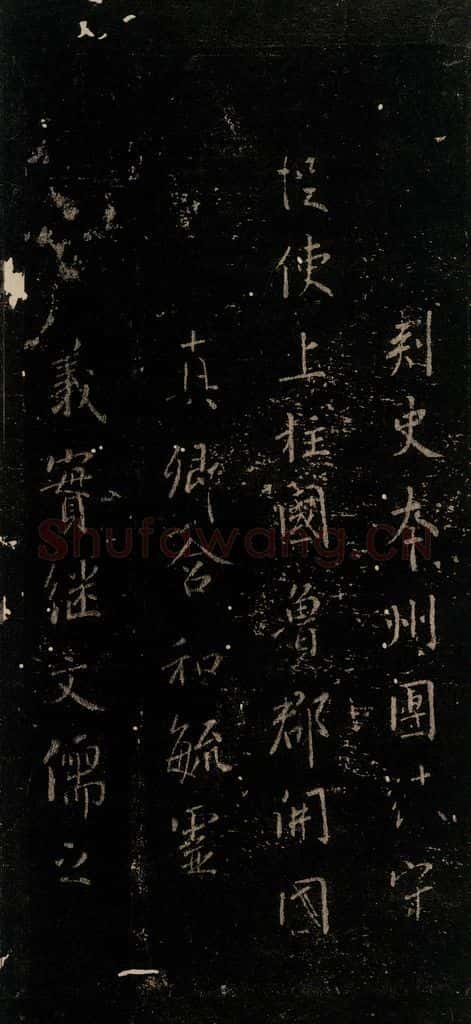 刾史本州團练守
捉使上柱國魯郡開國
真卿含和毓靈
義實继文儒之
Shufawang.CN